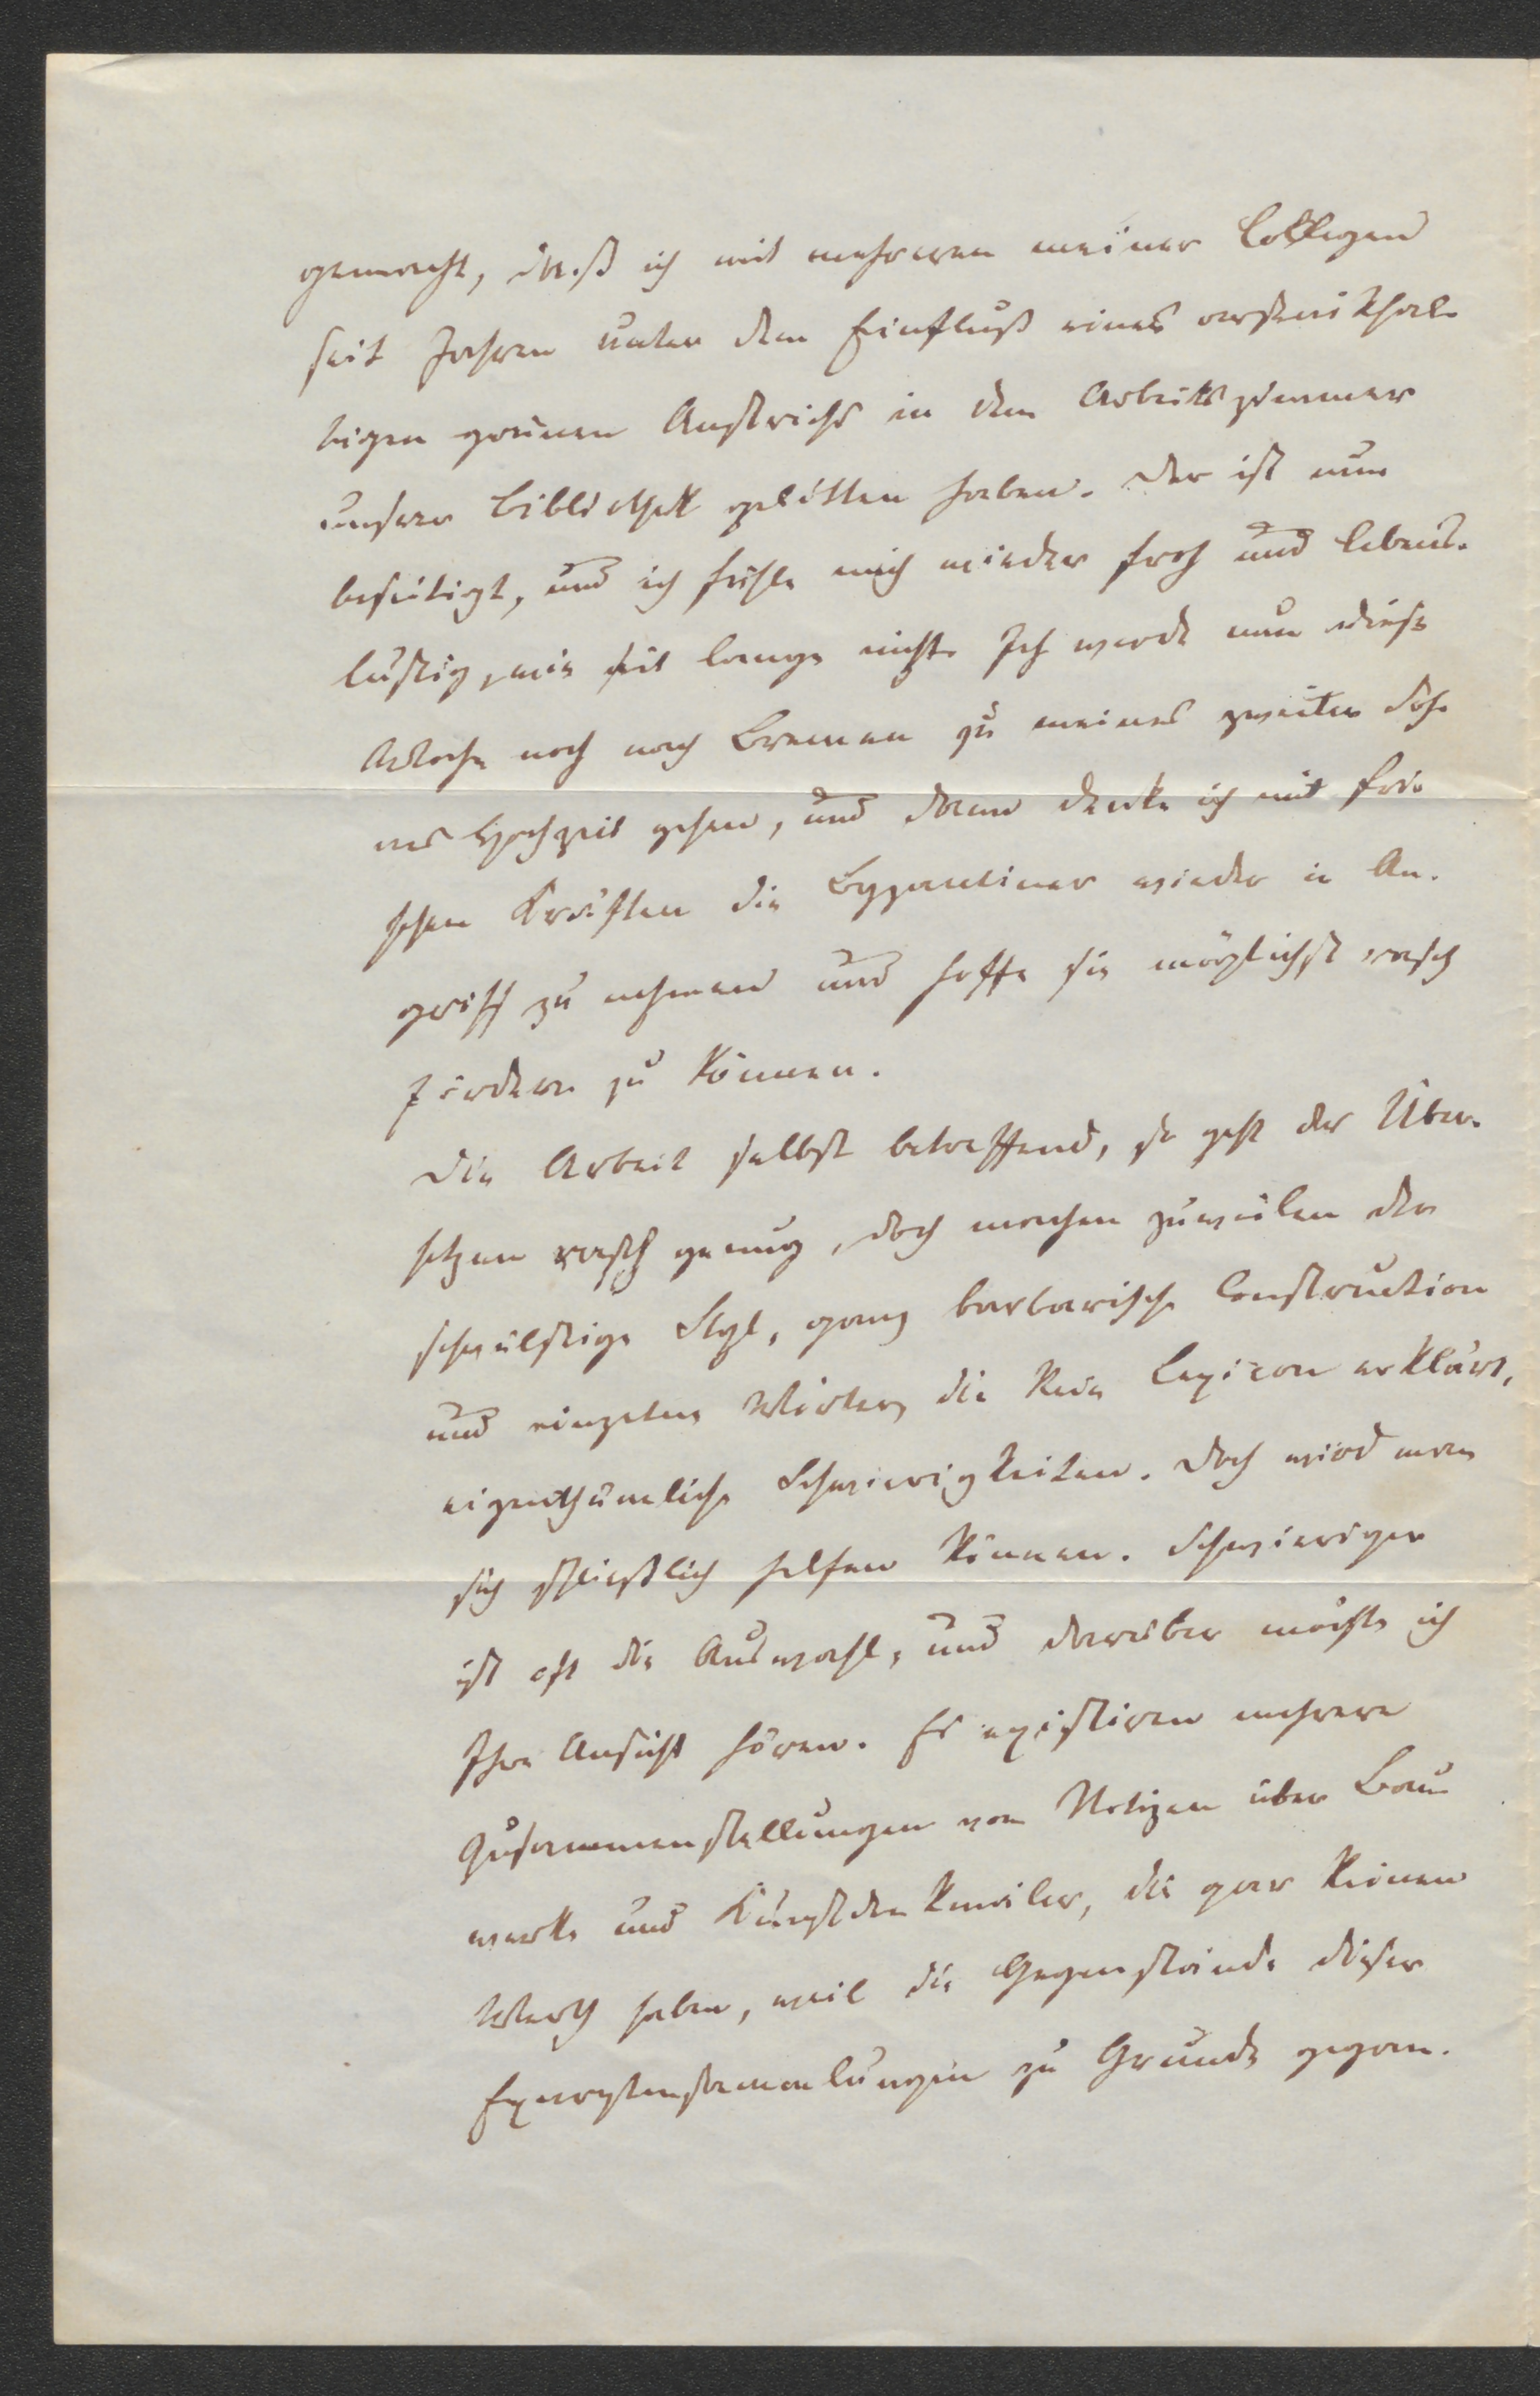 gemacht, daß ich mit mehreren meiner Collegen
seit Jahren unter dem Einfluß eines arsenikhal-
tigen grünen Anstrichs in dem Arbeitszimmer
unserer Bibliothek gelitten haben. Der ist nun
beseitigt, und ich fühle mich wieder froh und lebens-
lustig, wie seit lange nicht. Ich werde nun diese
Woche noch nach Bremen zu meines zweiten Soh-
nes Hochzeit gehen, und dann denke ich mit fri-
schen Kräften die Byzantiner wieder in An-
griff zu nehmen und hoffe sie möglichst rasch
fördern zu können.
Die Arbeit selbst betreffend, so geht das Über-
setzen rasch genug, doch machen zuweilen der
schwülstige Styl, ganz barbarische Construction
und einzelne Wörter, die kein Lexicon erklärt,
eigenthümliche Schwierigkeiten. Doch wird man
sich schließlich helfen können. Schwieriger
ist oft die Auswahl, und darüber möchte ich
Ihre Ansicht hören. Es existiren mehrere
Zusammenstellungen von Notizen über Bau-
werke und Kunstdenkmäler, die gar keinen
Werth haben, weil die Gegenstände dieser
Excerptensammlungen zu Grunde gegan-